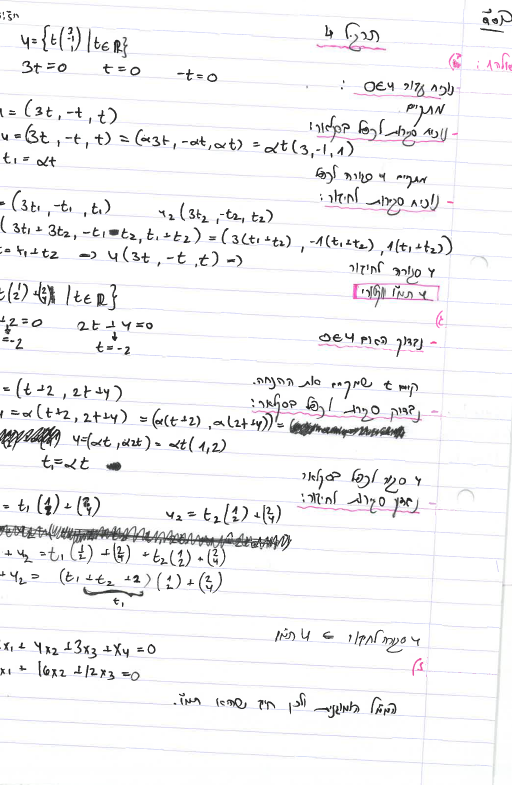 תרגיל 4
u = {t(3 -1 1) | t∈ℝ}
3t=0 t=0 -t=0
נוכיח עבור 0∈u:
מתקיים
= (3t, -t, t)
נוכיח סגירות לכפל בסקלאר:
u = (3t, -t, t) = (α3t, -αt, αt) = αt(3,-1,1)
t₁ = αt
מתקיים u סגורה לכפל
נוכיח סגירות לחיבור:
= (3t₁, -t₁, t₁) u₂(3t₂, -t₂, t₂)
(3t₁+3t₂, -t₁-t₂, t₁+t₂) = (3(t₁+t₂), -1(t₁+t₂), 1(t₁+t₂))
t=t₁+t₂ => u(3t, -t, t) =>
u סגורה לחיבור
u תמ"ו
t(1 2)+(2 4) | t∈ℝ}
+2=0 2t+4=0
=-2 t=-2
נבדוק האם 0∈u
קיים t שמקיים את
= (t+2, 2t+4)
נבדוק סגירות לכפל בסקלאר:
= α(t+2, 2t+4) = (α(t+2), α(2t+4)) =
u=(αt, α2t) = αt(1,2)
t₁=αt
u סגור לכפל בסקלאר
נבדוק סגירות לחיבור:
= t₁(1 2)+(2 4) u₂ = t₂(1 2)+(2 4)
+ u₂ = t₁(1 2)+(2 4)+t₂(1 2)+(2 4)
+ u₂ = (t₁+t₂+2)(1 2)+(2 4)
t₁
u סגורה לחיבור => u תמ"ו
x₁ + 4x₂ + 3x₃ + x₄ = 0
x₁ + 16x₂ + 12x₃ = 0